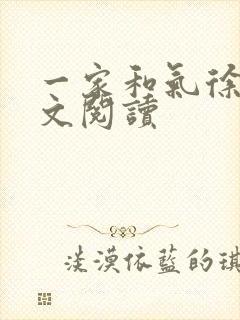 一家和氣徐
文閱讀
淡漠依藍的琪